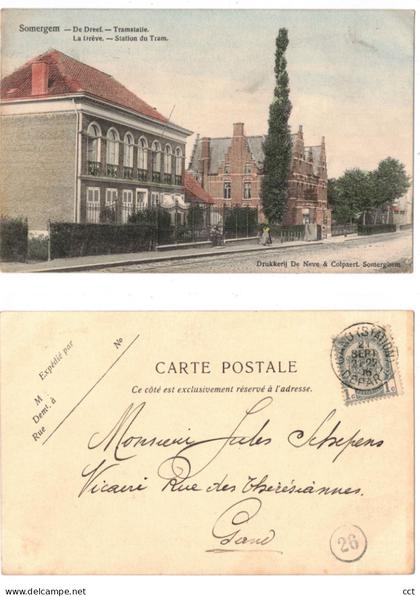 Somergem — De Dreef. — Tramstatie.
La Drève. — Station du Tram.
Drukkerij De Neve & Colpaert. Somerghem
CARTE POSTALE
Ce côté est exclusivement réservé à l'adresse.
Expédié par
M
Demt. à
Rue
No
GAND (STATION)
21
SEPT
DEPART
1c 1c
Monsieur Jules Schepens
Vicaire Rue des Thérésiannes
Gand
26
cct